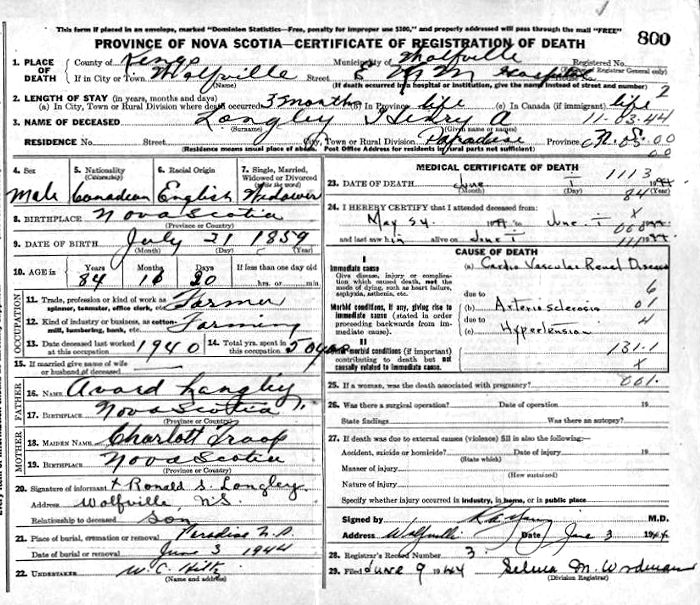 This form if placed in an envelope, marked "Dominion Statistics—Free, penalty for improper use $300," and properly addressed will pass through the mail "FREE"
800
PROVINCE OF NOVA SCOTIA—CERTIFICATE OF REGISTRATION OF DEATH
1. PLACE OF DEATH
County of Kings Municipality of Wolfville Registered No.
(For use of Registrar General only)
If in City or Town Wolfville Street E K M Hospital 2
(Name) (If death occurred in a hospital or institution, give the name instead of street and number)
2. LENGTH OF STAY (in years, months and days)
(a) In City, Town or Rural Division where death occurred 3 months (b) In Province life (c) In Canada (if immigrant) life
3. NAME OF DECEASED Longley Henry A 11-03-44
(Surname) (Given name or names)
RESIDENCE No. Street City, Town or Rural Division Paradise Province N.S.
(Residence means usual place of abode. Post Office Address for residents in rural parts not sufficient)
4. Sex 5. Nationality (Citizenship) 6. Racial Origin 7. Single, Married, Widowed or Divorced (write the word)
Male Canadian English Widower
8. BIRTHPLACE Nova Scotia
(Province or Country)
9. DATE OF BIRTH July 21 1859
(Month) (Day) (Year)
10. AGE in Years Months Days If less than one day old
84 10 hrs. or min.
OCCUPATION
11. Trade, profession or kind of work as spinner, teamster, office clerk, etc. Farmer
12. Kind of industry or business, as cotton mill, lumbering, bank, etc. Farming
13. Date deceased last worked at this occupation 1940 14. Total yrs. spent in this occupation 50 years
15. If married give name of wife or husband of deceased
FATHER
16. NAME Avard Langley
17. BIRTHPLACE Nova Scotia
(Province or Country)
MOTHER
18. MAIDEN NAME Charlott Troop
19. BIRTHPLACE Nova Scotia
(Province or Country)
20. Signature of informant + Ronald S. Longley
Address Wolfville, N.S.
Relationship to deceased Son
21. Place of burial, cremation or removal Paradise N.S
Date of burial or removal June 3 1944
22. UNDERTAKER W. C. Hiltz
(Name and address)
MEDICAL CERTIFICATE OF DEATH
1113
23. DATE OF DEATH June 1 1944
(Month) (Day) (Year)
84
24. I HEREBY CERTIFY that I attended deceased from:
May 24 1944 to June 1 1944
X
and last saw him alive on June 1 1944
CAUSE OF DEATH
I
Immediate cause (a) Cardio Vascular Renal Disease
Give disease, injury or complication which caused death, not the mode of dying, such as heart failure, asphyxia, asthenia, etc.
due to 6
Morbid conditions, if any, giving rise to immediate cause (stated in order proceeding backwards from immediate cause).
(b) Arterio sclerosis 01
due to 4
(c) Hypertension
II
Other morbid conditions (if important) contributing to death but not causally related to immediate cause.
131-1
X
25. If a woman, was the death associated with pregnancy? 001.
26. Was there a surgical operation? Date of operation 19
State findings Was there an autopsy?
27. If death was due to external causes (violence) fill in also the following:—
Accident, suicide or homicide? Date of injury 19
(State which)
Manner of injury
(How sustained)
Nature of injury
Specify whether injury occurred in industry, in home, or in public place
Signed by M.D.
Address Wolfville Date June 3 1944
28. Registrar's Record Number 3
29. Filed June 9 1944 Selma M. Woodman
(Division Registrar)